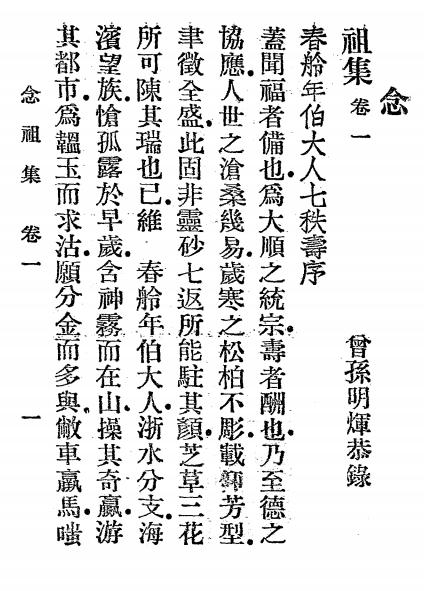 念
祖集 卷一 曾孫明煇恭錄
春舲年伯大人七秩壽序
蓋聞福者備也爲大順之統宗壽者酬也乃至德之
協應人世之滄桑幾易歲寒之松柏不彫載芳型
聿徵全盛此固非靈砂七返所能駐其顏芝草三花
所可陳其瑞也已維　春舲年伯大人浙水分支海
濱望族愴孤露於早歲含神霧而在山操其奇贏游
其都市爲韞玉而求沽願分金而多與敝車羸馬嗤
念祖集 卷一 一